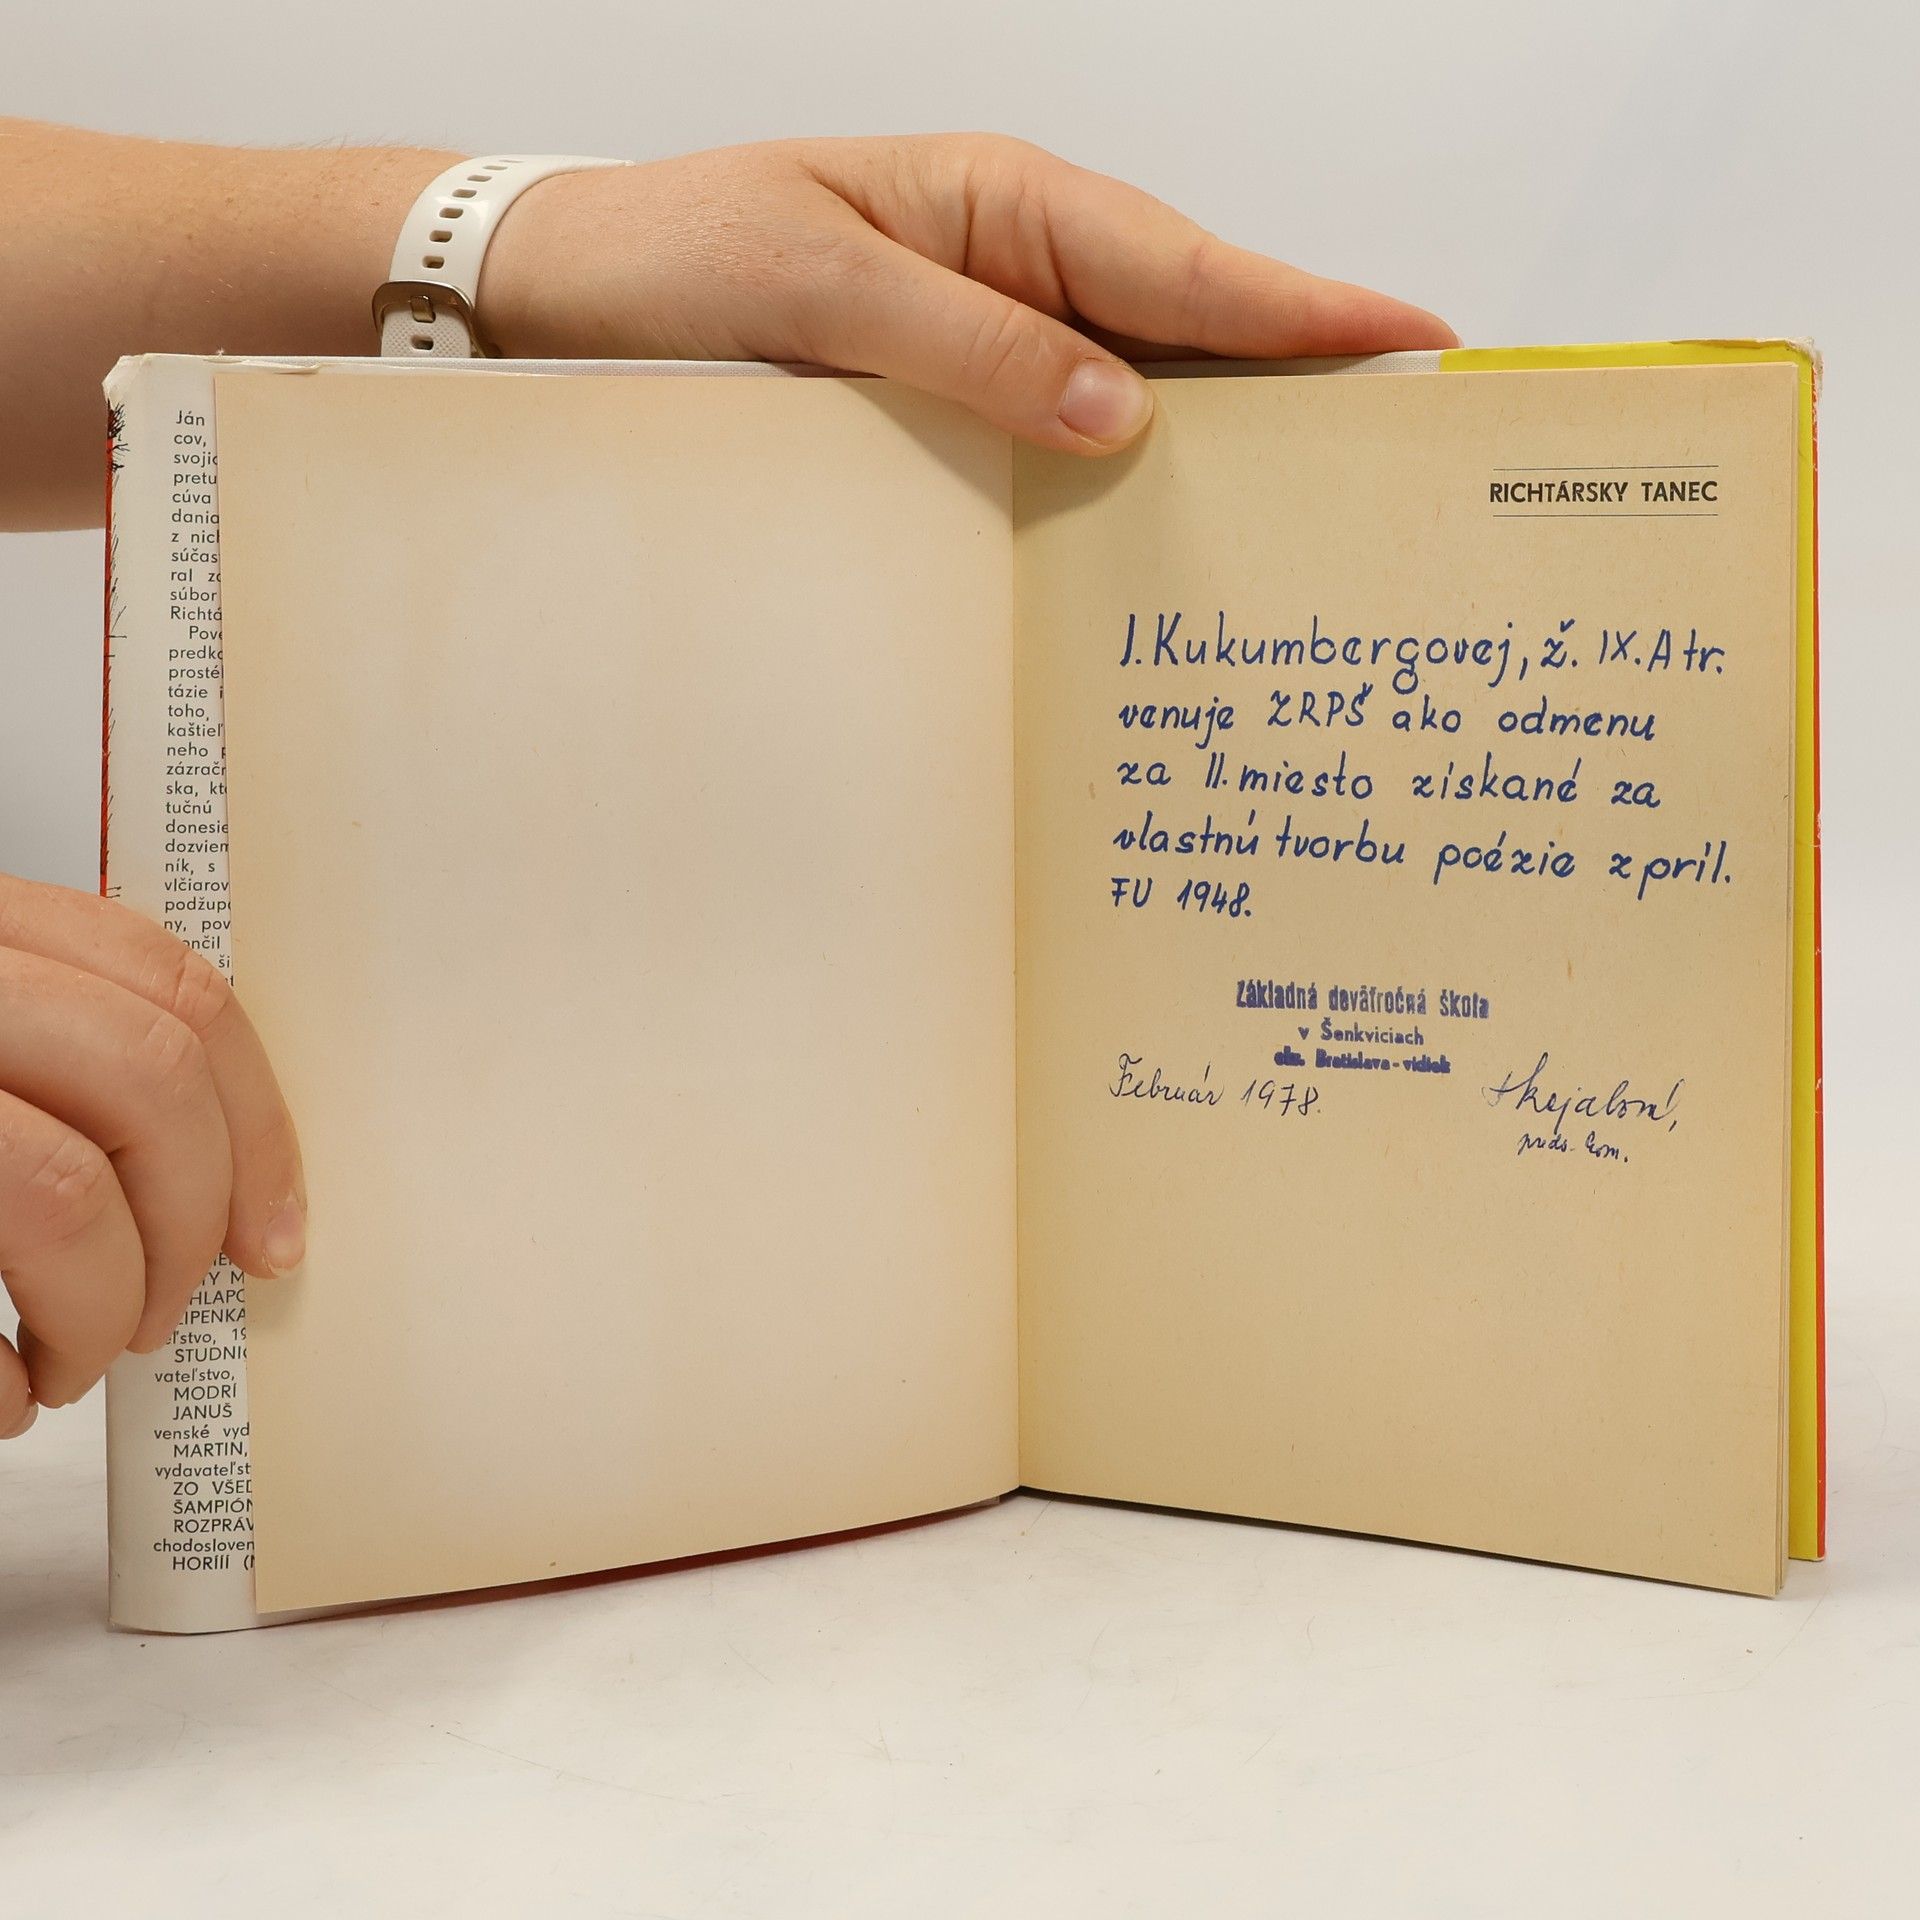 Ján
cov,
svojic
pretu
cúva
dania
z nich
súčas
ral
súbor
Richtá
Pove
predko
prosté
tázie
toho,
kaštieľ
neho
zázračn
ska,
tučnú
donesie
dozviem
ník, s
vlčiarov
podžupa
ny, pov
ončil
ši
TY M
HLAPC
LIPENKA
eľstvo, 19
STUDNI
vateľstvo,
MODRÍ
JANUŠ
venské vyd
MARTIN,
vydavateľst
ZO VŠED
ŠAMPIÓN
ROZPRÁV
chodosloven
HORÍÍÍ
RICHTÁRSKY TANEC
I. Kukumbergovej, ž. IX. A tr.
venuje ZRPŠ ako odmenu
za II. miesto získané za
vlastnú tvorbu poézie z príl.
FU 1948.
Základná deväťročná škola
v Šenkviciach
okr. Bratislava-vidiek
Február 1978.
preds. kom.